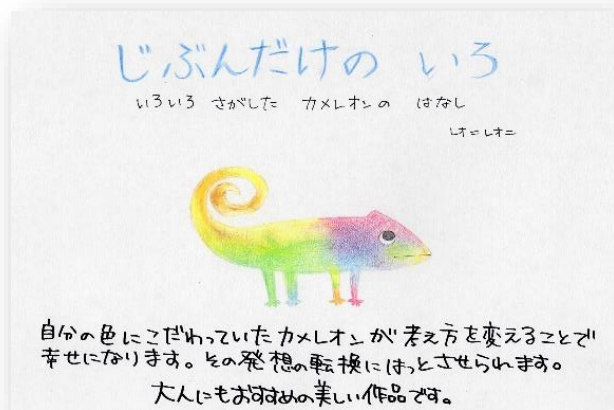 じぶんだけの いろ
いろいろ さがした カメレオンの はなし
レオ=レオニ
自分の色にこだわっていたカメレオンが考え方を変えることで
幸せになります。その発想の転換にはっとさせられます。
大人にもおすすめの美しい作品です。